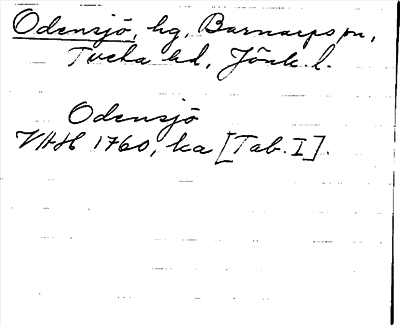 Odensjö, hg, Barnarps sn,
Tveta hd, Jönk. l.
Odensjö
VHH 1760, ka [Tab. I].